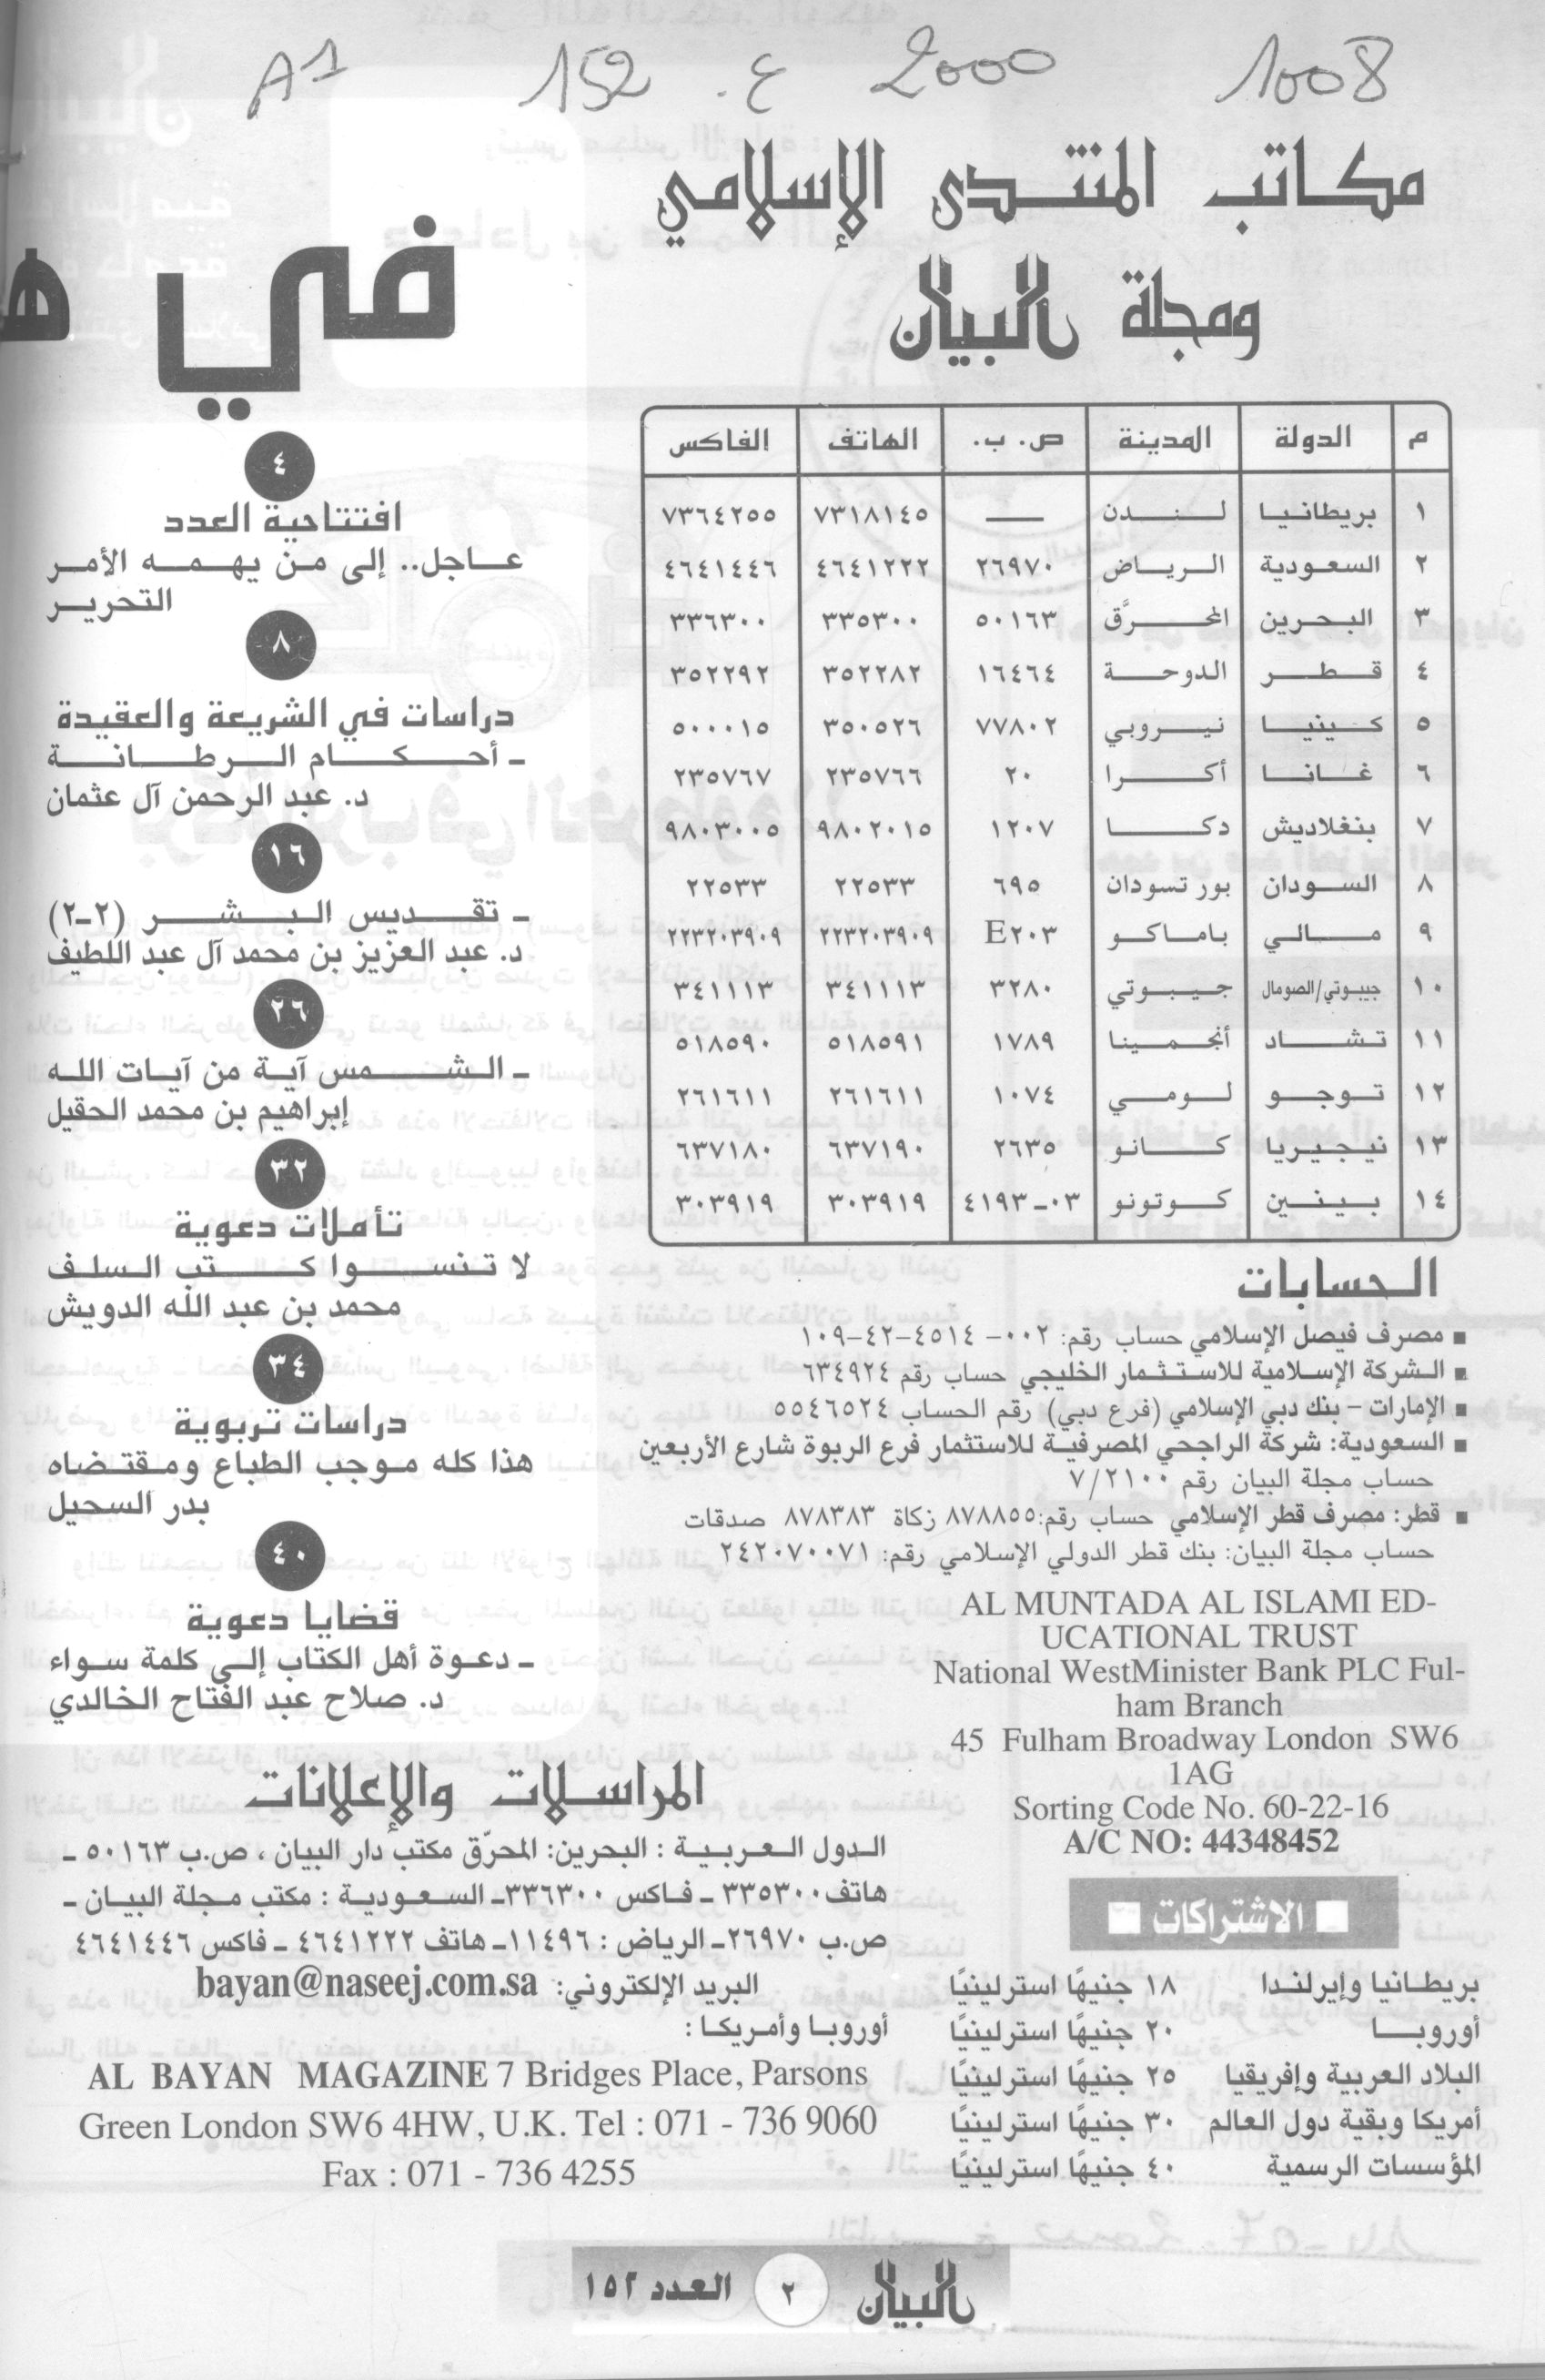 A1 152 ع. 2000 1008
مكاتب المنتدى الإسلامي
ومجلة البيان
م الدولة المدينة ص. ب. الهاتف الفاكس
١ بريطانيا لندن — ٧٣١٨١٤٥ ٧٣٦٤٢٥٥
٢ السعودية الرياض ٢٦٩٧٠ ٤٦٤١٢٢٢ ٤٦٤١٤٤٦
٣ البحرين المحرَّق ٥٠١٦٣ ٣٣٥٣٠٠ ٣٣٦٣٠٠
٤ قطر الدوحة ١٦٤٦٤ ٣٥٢٢٨٢ ٣٥٢٢٩٢
٥ كينيا نيروبي ٧٧٨٠٢ ٣٥٠٥٢٦ ٥٠٠٠١٥
٦ غانا أكرا ٢٠ ٢٣٥٧٦٦ ٢٣٥٧٦٧
٧ بنغلاديش دكا ١٢٠٧ ٩٨٠٢٠١٥ ٩٨٠٣٠٠٥
٨ السودان بور تسودان ٦٩٥ ٢٢٥٣٣ ٢٢٥٣٣
٩ مالي باماكو E٢٠٣ ٢٢٣٢٠٣٩٠٩ ٢٢٣٢٠٣٩٠٩
١٠ جيبوتي/الصومال جيبوتي ٣٢٨٠ ٣٤١١١٣ ٣٤١١١٣
١١ تشاد أنجمينا ١٧٨٩ ٥١٨٥٩١ ٥١٨٥٩٠
١٢ توجو لومي ١٠٧٤ ٢٦١٦١١ ٢٦١٦١١
١٣ نيجيريا كانو ٢٦٣٥ ٦٣٧١٩٠ ٦٣٧١٨٠
١٤ بينين كوتونو ٠٣-٤١٩٣ ٣٠٣٩١٩ ٣٠٣٩١٩
الحسابات
▪ مصرف فيصل الإسلامي حساب رقم: ٠٠٢-٤٥١٤-٤٢-١٠٩
▪ الشركة الإسلامية للاستثمار الخليجي حساب رقم ٦٣٤٩٢٤
▪ الإمارات - بنك دبي الإسلامي (فرع دبي) رقم الحساب ٥٥٤٦٥٢٤
▪ السعودية: شركة الراجحي المصرفية للاستثمار فرع الربوة شارع الأربعين
حساب مجلة البيان رقم ٧/٢١٠٠
▪ قطر: مصرف قطر الإسلامي حساب رقم:٨٧٨٨٥٥ زكاة ٨٧٨٣٨٣ صدقات
حساب مجلة البيان: بنك قطر الدولي الإسلامي رقم: ٢٤٢٠٧٠٠٧١
AL MUNTADA AL ISLAMI ED-
UCATIONAL TRUST
National WestMinister Bank PLC Ful-
ham Branch
45 Fulham Broadway London SW6
1AG
Sorting Code No. 60-22-16
A/C NO: 44348452
الاشتراكات
بريطانيا وإيرلندا ١٨ جنيهًا استرلينيًا
أوروبا ٢٠ جنيهًا استرلينيًا
البلاد العربية وإفريقيا ٢٥ جنيهًا استرلينيًا
أمريكا وبقية دول العالم ٣٠ جنيهًا استرلينيًا
المؤسسات الرسمية ٤٠ جنيهًا استرلينيًا
في
٤
افتتاحية العدد
عاجل.. إلى من يهمه الأمر
التحرير
٨
دراسات في الشريعة والعقيدة
ـ أحكام الرطانة
د. عبد الرحمن آل عثمان
١٦
ـ تقديس البشر (٢-٢)
د. عبد العزيز بن محمد آل عبد اللطيف
٢٦
ـ الشمس آية من آيات الله
إبراهيم بن محمد الحقيل
٣٢
تأملات دعوية
لا تنسوا كتب السلف
محمد بن عبد الله الدويش
٣٤
دراسات تربوية
هذا كله موجب الطباع ومقتضاه
بدر السحيل
٤٠
قضايا دعوية
ـ دعوة أهل الكتاب إلى كلمة سواء
د. صلاح عبد الفتاح الخالدي
المراسلات والإعلانات
الدول العربية : البحرين: المحرّق مكتب دار البيان ، ص.ب ٥٠١٦٣ ـ
هاتف ٣٣٥٣٠٠ ـ فاكس ٣٣٦٣٠٠ـ السعودية : مكتب مجلة البيان ـ
ص.ب ٢٦٩٧٠ـ الرياض : ١١٤٩٦ـ هاتف ٤٦٤١٢٢٢ ـ فاكس ٤٦٤١٤٤٦
البريد الإلكتروني: bayan@naseej.com.sa
أوروبا وأمريكا :
AL BAYAN MAGAZINE 7 Bridges Place, Parsons
Green London SW6 4HW, U.K. Tel : 071 - 736 9060
Fax : 071 - 736 4255
البيان ٢ العدد ١٥٢